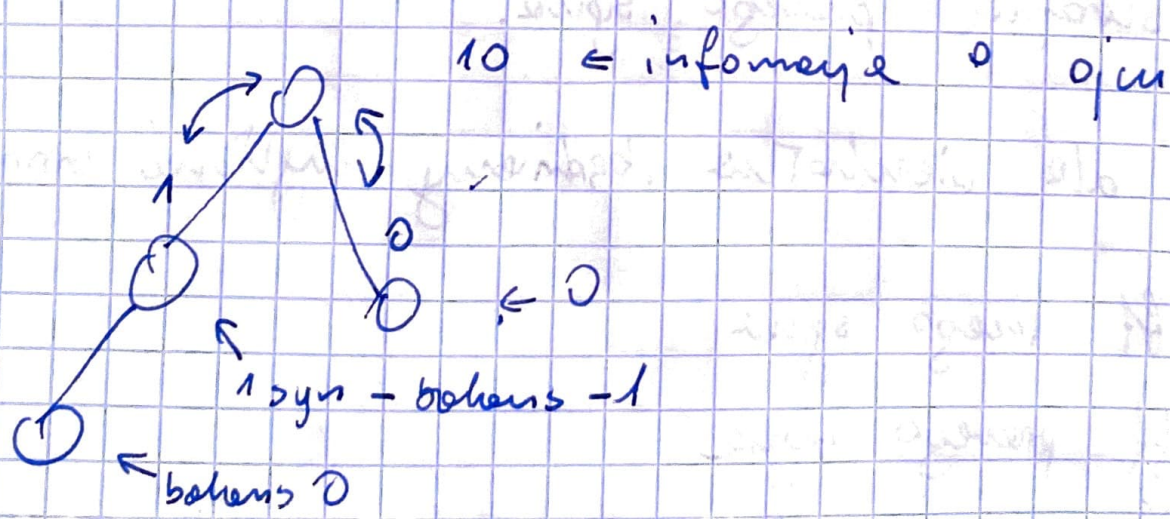 10 ← infomacje o ojcu
1
0
← 0
1 syn - balans -1
balans 0